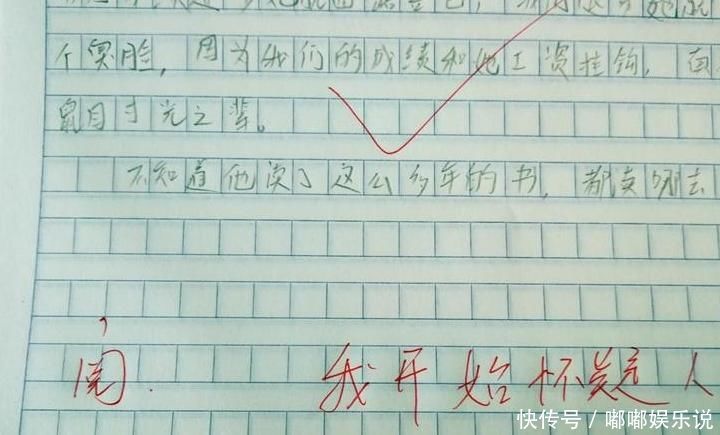 个笑脸，因为我们的成绩和她工资挂钩，
鼠目寸光之辈。
不知道他读了这么多年的书，都读哪去
阅. 我开始怀疑人
快传号/嘟嘟娱乐说